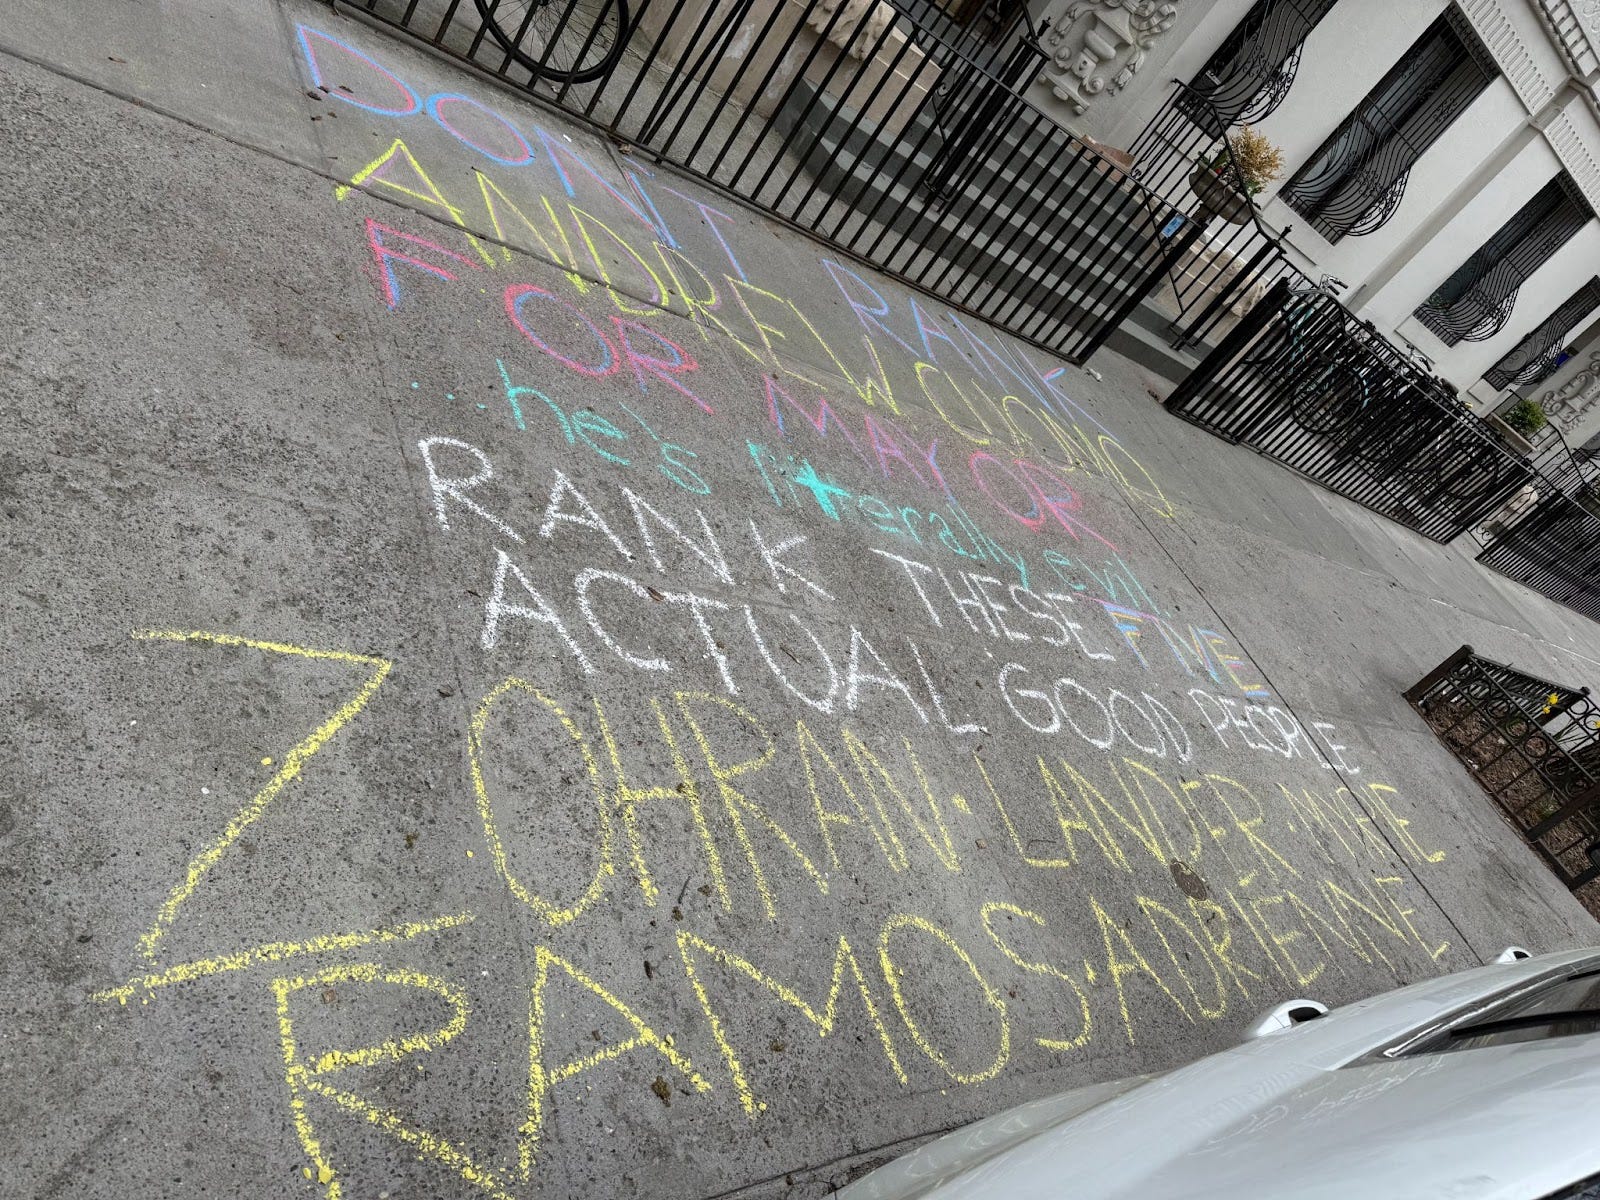 DON'T RANK
ANDREW CUOMO
FOR MAYOR
...he's literally evil.
RANK THESE FIVE
ACTUAL GOOD PEOPLE
ZOHRAN · LANDER · MYRIE
RAMOS · ADRIENNE